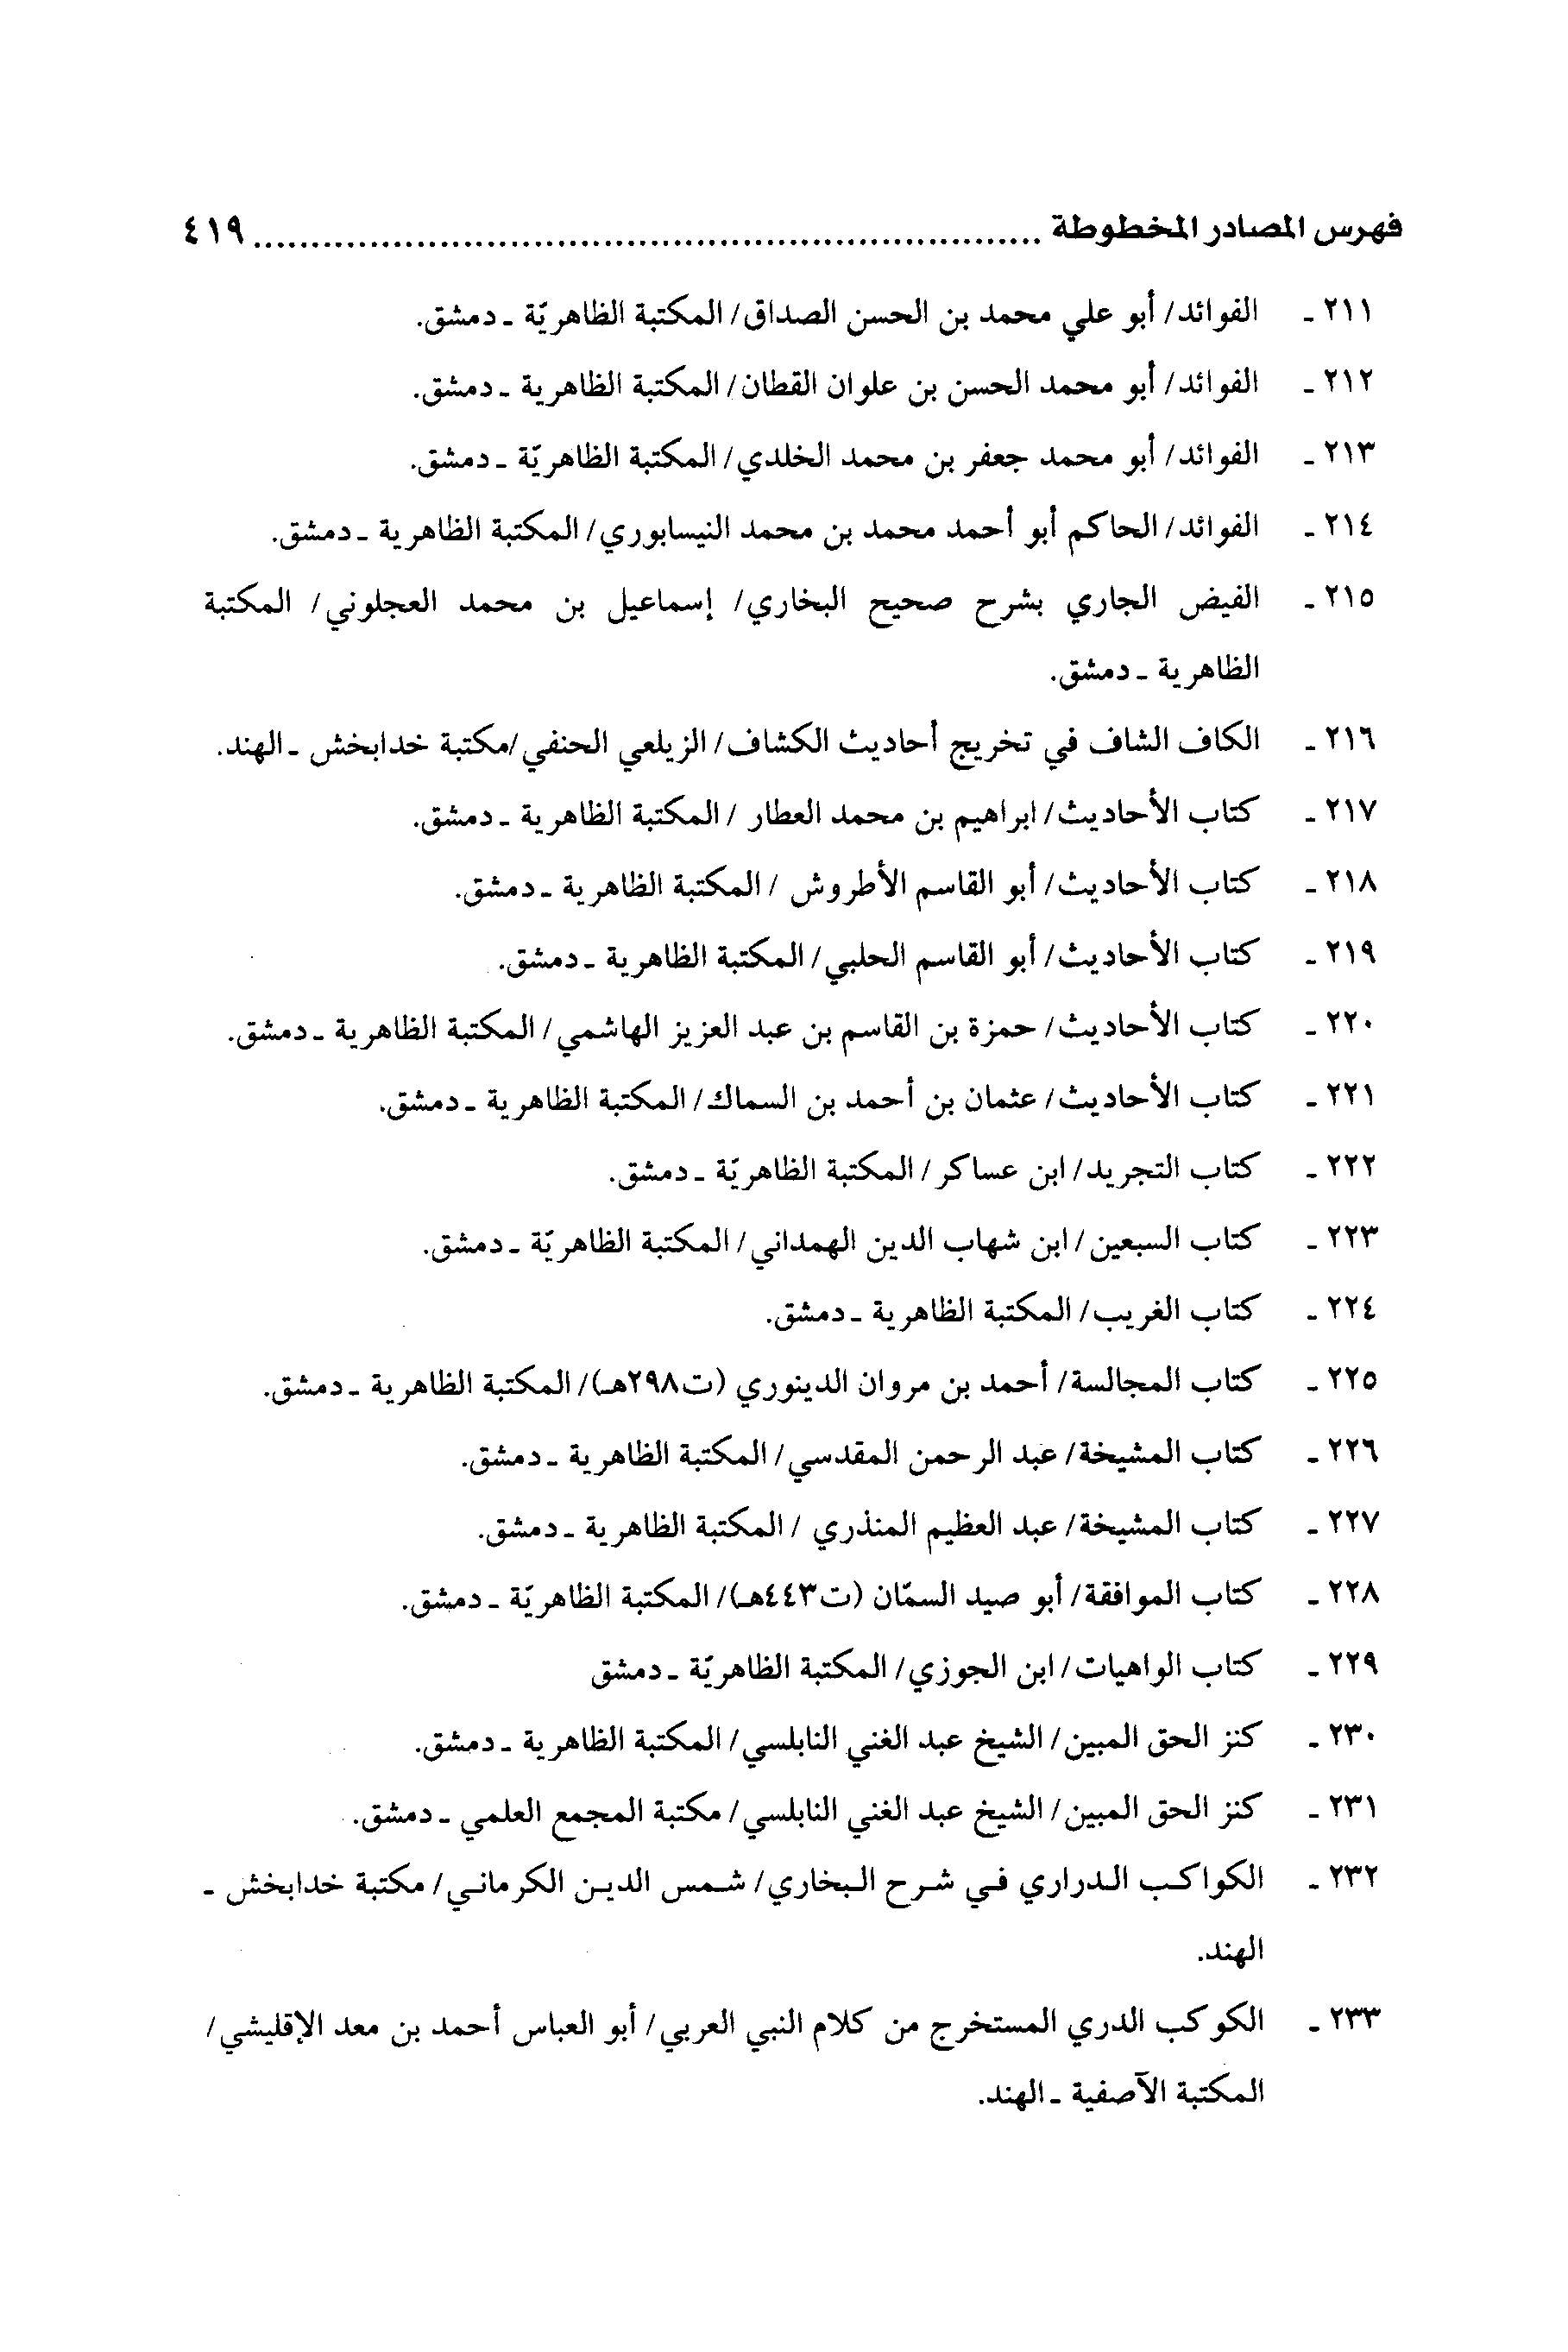 فهرس المصادر المخطوطة ........................................................................ ٤١٩
٢١١ ـ الفوائد/ أبو علي محمد بن الحسن الصداق/ المكتبة الظاهريّة ـ دمشق.
٢١٢ ـ الفوائد/ أبو محمد الحسن بن علوان القطان/ المكتبة الظاهرية ـ دمشق.
٢١٣ ـ الفوائد/ أبو محمد جعفر بن محمد الخلدي/ المكتبة الظاهريّة ـ دمشق.
٢١٤ ـ الفوائد/ الحاكم أبو أحمد محمد بن محمد النيسابوري/ المكتبة الظاهرية ـ دمشق.
٢١٥ ـ الفيض الجاري بشرح صحيح البخاري/ إسماعيل بن محمد العجلوني/ المكتبة
الظاهرية ـ دمشق.
٢١٦ ـ الكاف الشاف في تخريج أحاديث الكشاف/ الزيلعي الحنفي/مكتبة خدابخش ـ الهند.
٢١٧ ـ كتاب الأحاديث/ ابراهيم بن محمد العطار / المكتبة الظاهرية ـ دمشق.
٢١٨ ـ كتاب الأحاديث/ أبو القاسم الأطروش / المكتبة الظاهرية ـ دمشق.
٢١٩ ـ كتاب الأحاديث/ أبو القاسم الحلبي/ المكتبة الظاهرية ـ دمشق.
٢٢٠ ـ كتاب الأحاديث/ حمزة بن القاسم بن عبد العزيز الهاشمي/ المكتبة الظاهرية ـ دمشق.
٢٢١ ـ كتاب الأحاديث/ عثمان بن أحمد بن السماك/ المكتبة الظاهرية ـ دمشق.
٢٢٢ ـ كتاب التجريد/ ابن عساكر/ المكتبة الظاهريّة ـ دمشق.
٢٢٣ ـ كتاب السبعين/ ابن شهاب الدين الهمداني/ المكتبة الظاهريّة ـ دمشق.
٢٢٤ ـ كتاب الغريب/ المكتبة الظاهرية ـ دمشق.
٢٢٥ ـ كتاب المجالسة/ أحمد بن مروان الدينوري (ت٢٩٨هـ)/ المكتبة الظاهرية ـ دمشق.
٢٢٦ ـ كتاب المشيخة/ عبد الرحمن المقدسي/ المكتبة الظاهرية ـ دمشق.
٢٢٧ ـ كتاب المشيخة/ عبد العظيم المنذري / المكتبة الظاهرية ـ دمشق.
٢٢٨ ـ كتاب الموافقة/ أبو صيد السمّان (ت٤٤٣هـ)/ المكتبة الظاهريّة ـ دمشق.
٢٢٩ ـ كتاب الواهيات/ ابن الجوزي/ المكتبة الظاهريّة ـ دمشق
٢٣٠ ـ كنز الحق المبين/ الشيخ عبد الغني النابلسي/ المكتبة الظاهرية ـ دمشق.
٢٣١ ـ كنز الحق المبين/ الشيخ عبد الغني النابلسي/ مكتبة المجمع العلمي ـ دمشق.
٢٣٢ ـ الكواكب الدراري في شرح البخاري/ شمس الدين الكرماني/ مكتبة خدابخش ـ
الهند.
٢٣٣ ـ الكوكب الدري المستخرج من كلام النبي العربي/ أبو العباس أحمد بن معد الإقليشي/
المكتبة الآصفية ـ الهند.